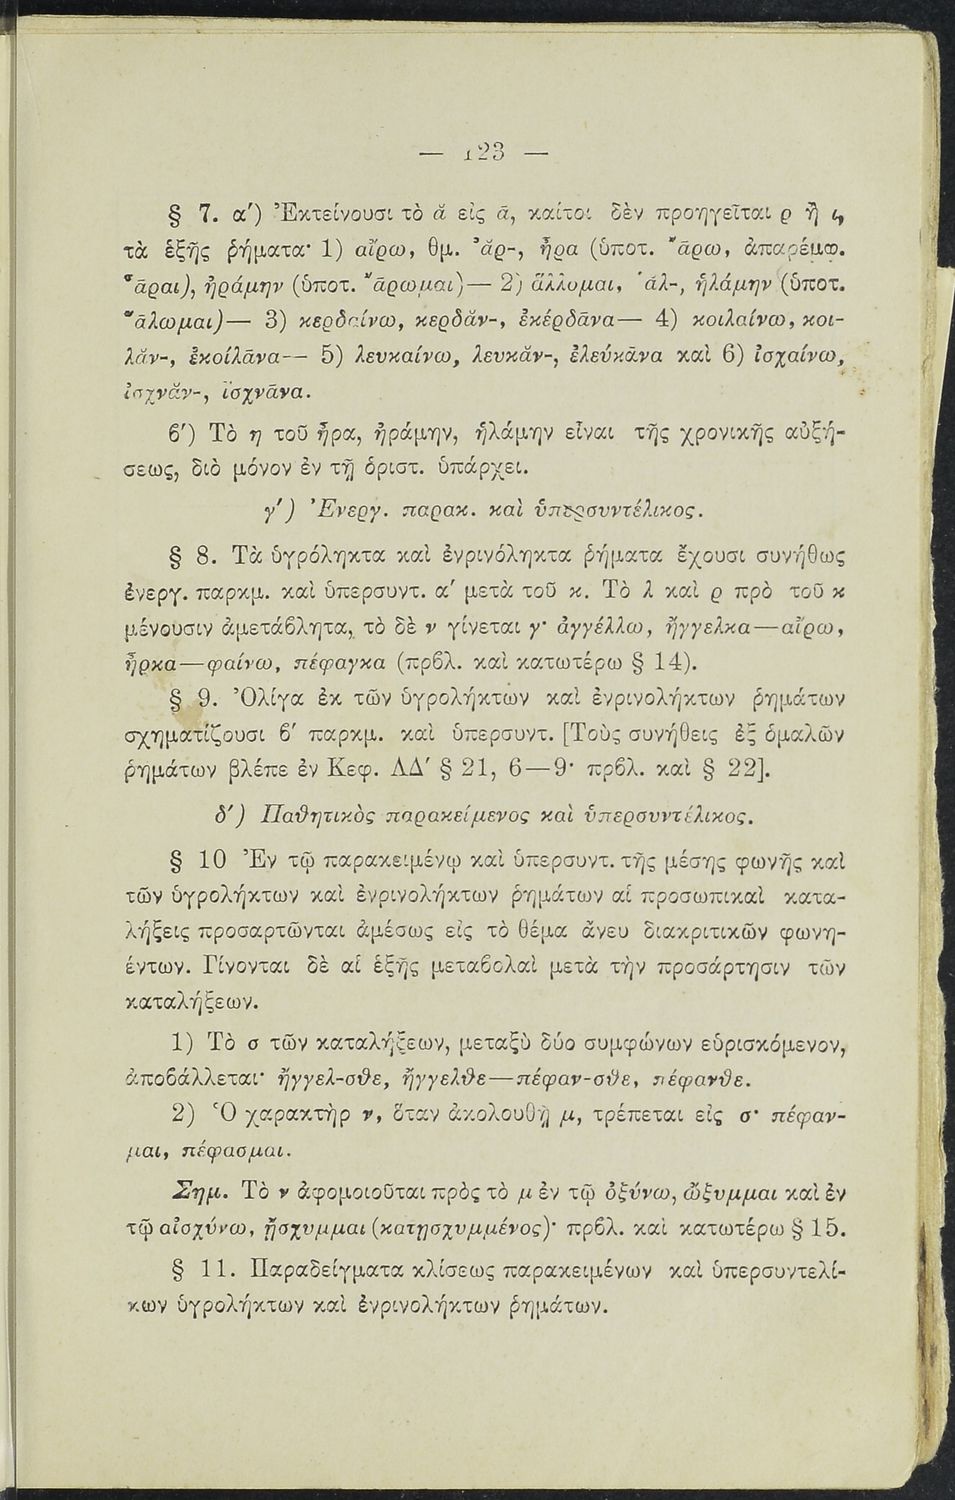 — 123 —
§ 7. α') Ἐκτείνουσι τὸ ᾰ εἰς ᾱ, καίτοι δὲν προηγεῖται ρ ἢ ι,
τὰ ἑξῆς ῥήματα· 1) αἴρω, θμ. ᾰ̓ρ-, ἦρα (ὑποτ. ᾱ̓́ρω, ἀπαρέμφ.
ᾱ̓͂ραι), ἠράμην (ὑποτ. ᾱ̓́ρωμαι)— 2) ἅλλομαι, ἁλ-, ἡλάμην (ὑποτ.
ᾱ̔́λωμαι)— 3) κερδαίνω, κερδᾰν-, ἐκέρδᾱνα— 4) κοιλαίνω, κοι-
λᾰν-, ἐκοίλᾱνα— 5) λευκαίνω, λευκᾰν-, ἐλεύκᾱνα καὶ 6) ἰσχαίνω,
ἰσχνᾰν-, ἴσχνᾱνα.
β') Τὸ η τοῦ ἦρα, ἠράμην, ἡλάμην εἶναι τῆς χρονικῆς αὐξή-
σεως, διὸ μόνον ἐν τῇ ὁριστ. ὑπάρχει.
γ') Ἐνεργ. παρακ. καὶ ὑπερσυντέλικος.
§ 8. Τὰ ὑγρόληκτα καὶ ἐνρινόληκτα ῥήματα ἔχουσι συνήθως
ἐνεργ. παρκμ. καὶ ὑπερσυντ. α' μετὰ τοῦ κ. Τὸ λ καὶ ρ πρὸ τοῦ κ
μένουσιν ἀμετάβλητα, τὸ δὲ ν γίνεται γ· ἀγγέλλω, ἤγγελκα—αἴρω,
ἦρκα—φαίνω, πέφαγκα (πρβλ. καὶ κατωτέρω § 14).
§ 9. Ὀλίγα ἐκ τῶν ὑγρολήκτων καὶ ἐνρινολήκτων ῥημάτων
σχηματίζουσι β' παρκμ. καὶ ὑπερσυντ. [Τοὺς συνήθεις ἐξ ὁμαλῶν
ῥημάτων βλέπε ἐν Κεφ. ΛΔ' § 21, 6—9· πρβλ. καὶ § 22].
δ') Παθητικὸς παρακείμενος καὶ ὑπερσυντέλικος.
§ 10 Ἐν τῷ παρακειμένῳ καὶ ὑπερσυντ. τῆς μέσης φωνῆς καὶ
τῶν ὑγρολήκτων καὶ ἐνρινολήκτων ῥημάτων αἱ προσωπικαὶ κατα-
λήξεις προσαρτῶνται ἀμέσως εἰς τὸ θέμα ἄνευ διακριτικῶν φωνη-
έντων. Γίνονται δὲ αἱ ἑξῆς μεταβολαὶ μετὰ τὴν προσάρτησιν τῶν
καταλήξεων.
1) Τὸ σ τῶν καταλήξεων, μεταξὺ δύο συμφώνων εὑρισκόμενον,
ἀποβάλλεται· ἤγγελ-σθε, ἤγγελθε—πέφαν-σθε, πέφανθε.
2) Ὁ χαρακτὴρ ν, ὅταν ἀκολουθῇ μ, τρέπεται εἰς σ· πέφαν-
μαι, πέφασμαι.
Σημ. Τὸ ν ἀφομοιοῦται πρὸς τὸ μ ἐν τῷ ὀξύνω, ὤξυμμαι καὶ ἐν
τῷ αἰσχύνω, ᾔσχυμμαι (κατῃσχυμμένος)· πρβλ. καὶ κατωτέρω § 15.
§ 11. Παραδείγματα κλίσεως παρακειμένων καὶ ὑπερσυντελί-
κων ὑγρολήκτων καὶ ἐνρινολήκτων ῥημάτων.